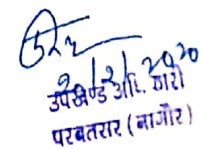 2/2/2020
उपखण्ड अधिकारी
परबतसर (नागौर)